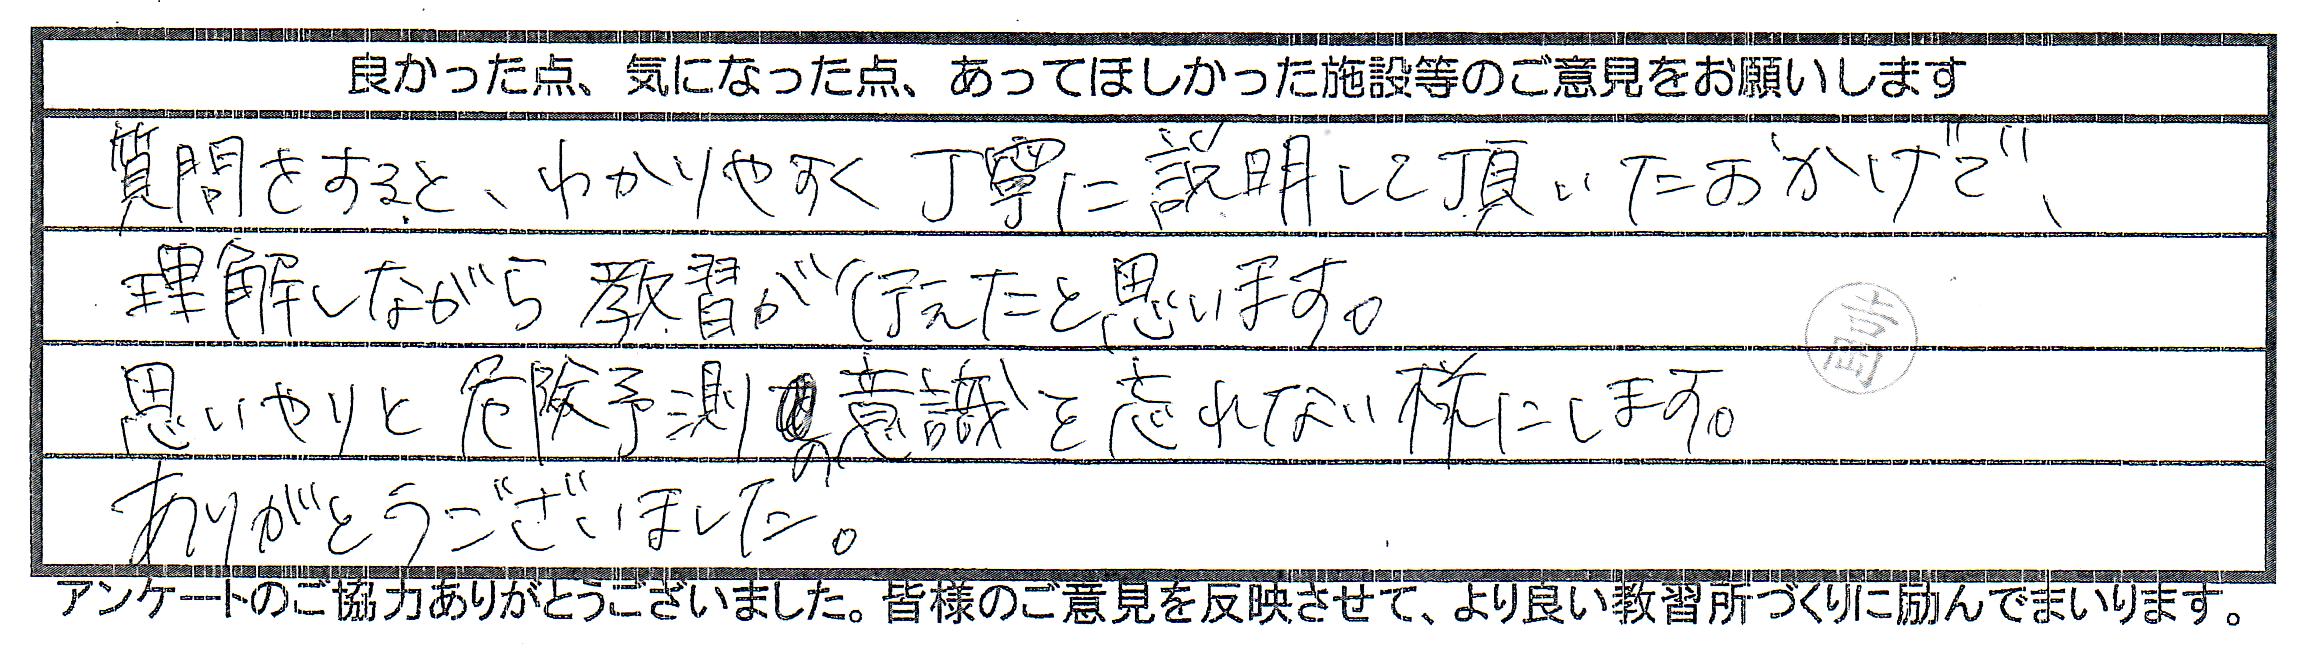 良かった点、気になった点、あってほしかった施設等のご意見をお願いします
質問をすると、わかりやすく丁寧に説明して頂いたおかげで、
理解しながら教習が行えたと思います。
思いやりと危険予測の意識を忘れない様にします。
ありがとうございました。
アンケートのご協力ありがとうございました。皆様のご意見を反映させて、より良い教習所づくりに励んでまいります。